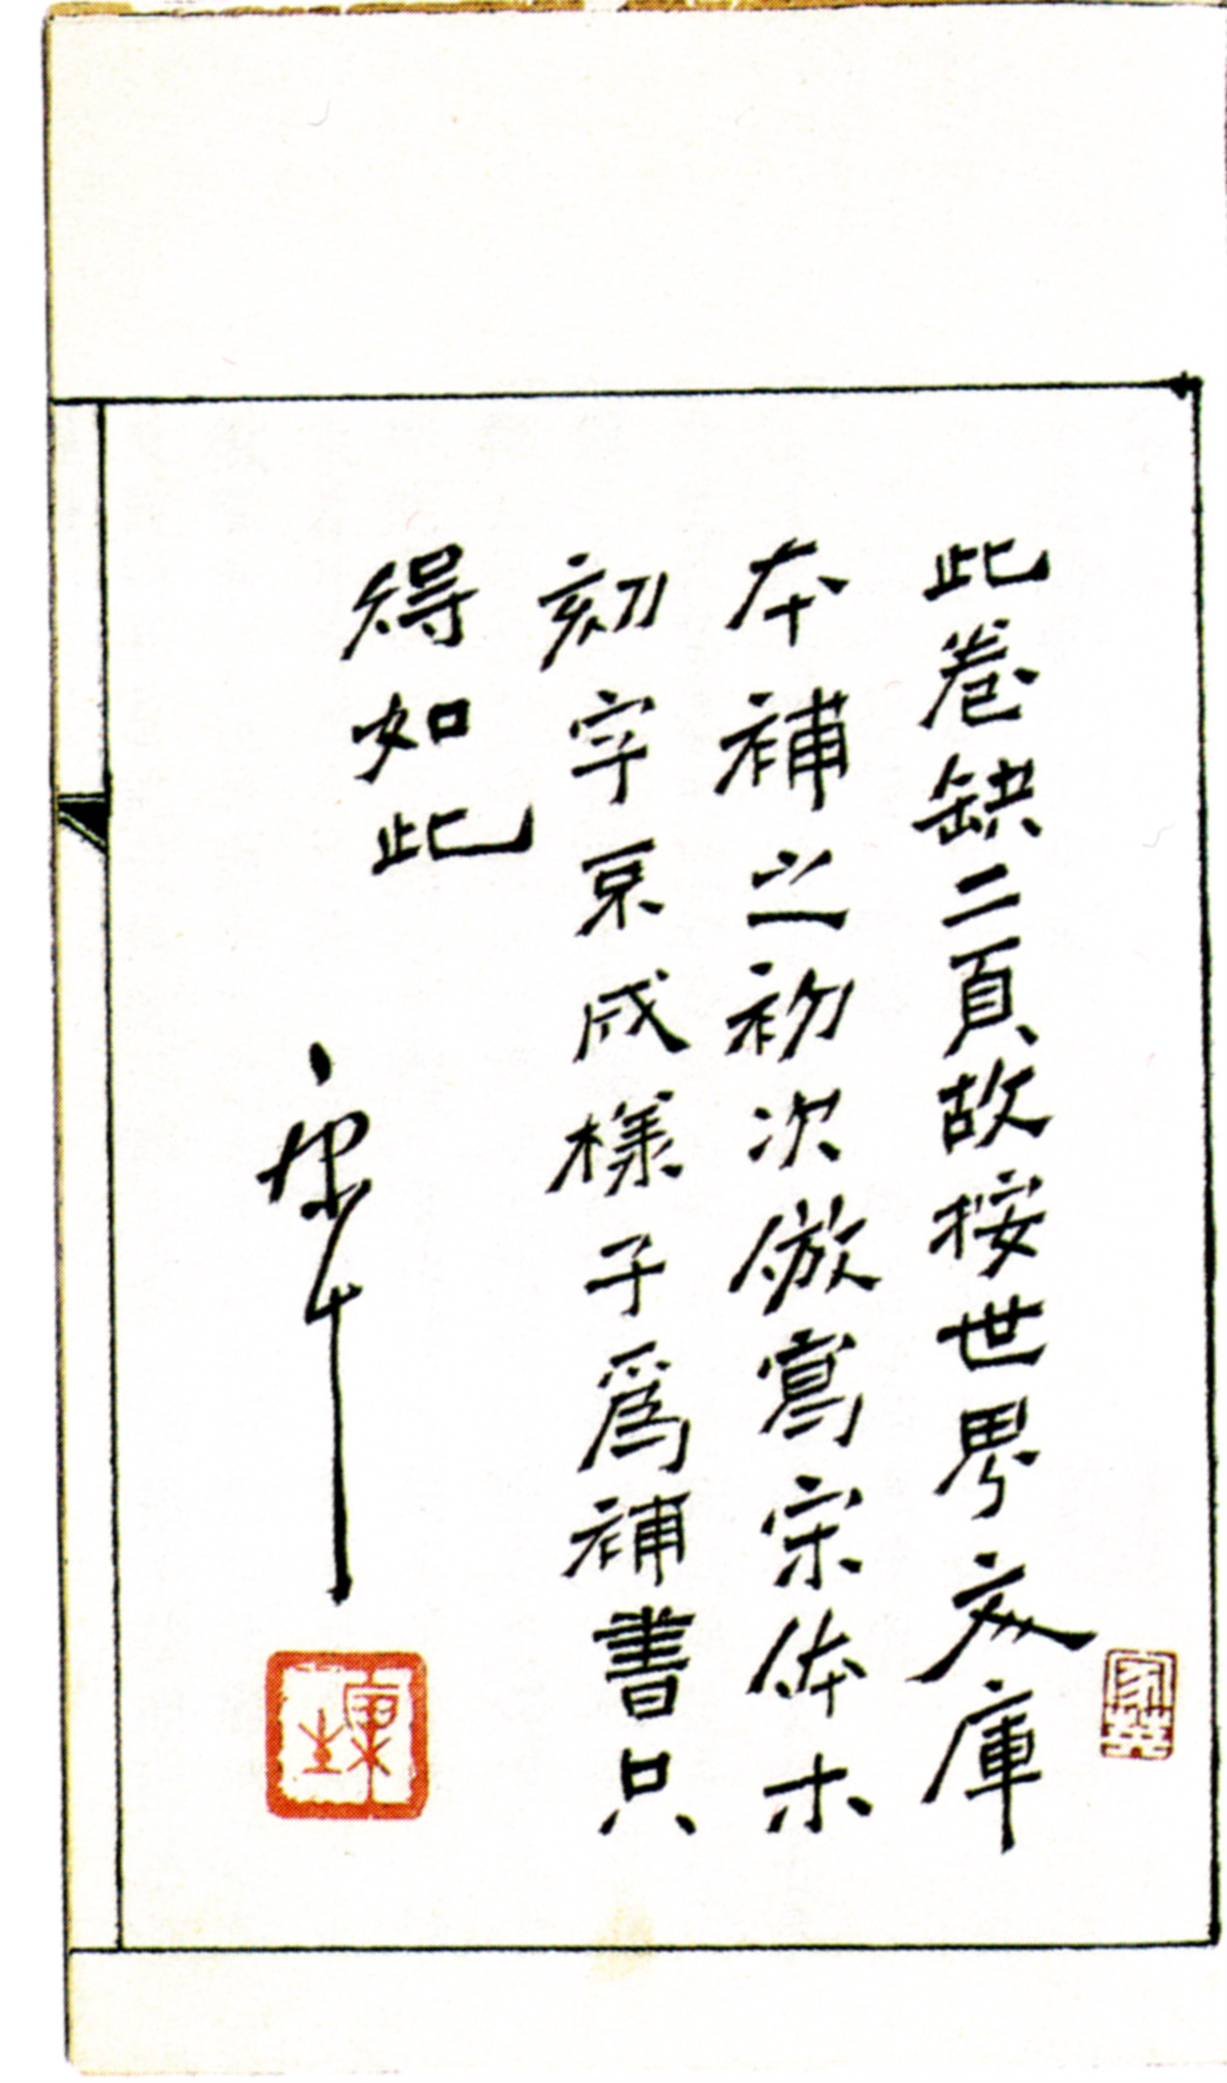 此卷缺二頁故按世界文庫
本補之初次倣寫宗体木
刻字京成樣子為補書只
得如此
康生